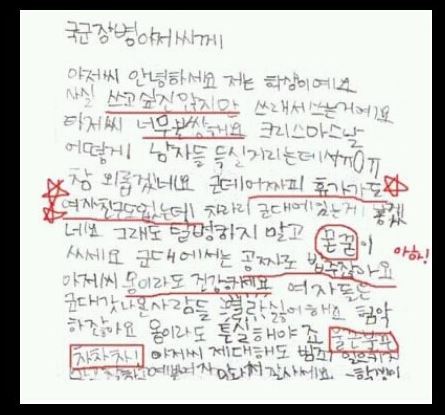 국군장병아저씨께
아저씨 안녕하세요 저는 학생이에요
사실 쓰고싶진않지만 쓰래서쓰는거에요
아저씨 너무불쌍해요 크리스마스날
어떻게 남자들 득실거리는데서 ㅠ0ㅠ
참 외롭겠네요 군데어짜피 휴가가도
여자친구도없는데! 차라리 군대에있는게 좋겠
네요 그래도 탈병하지 말고 꾿꾿이
싸세요 군대에서는 공짜로 밥주잖아요 아하!
아저씨 몸이라도 건강하세요 여자들은
군대갓나온사람들 별로싫어해요 험악
하잖아요 몸이라도 튼실해야죠 울끈불끈
차차차! 아저씨 제대해도 범죄 일으키지
예쁜여자 만나서 잘사세요 -학생이